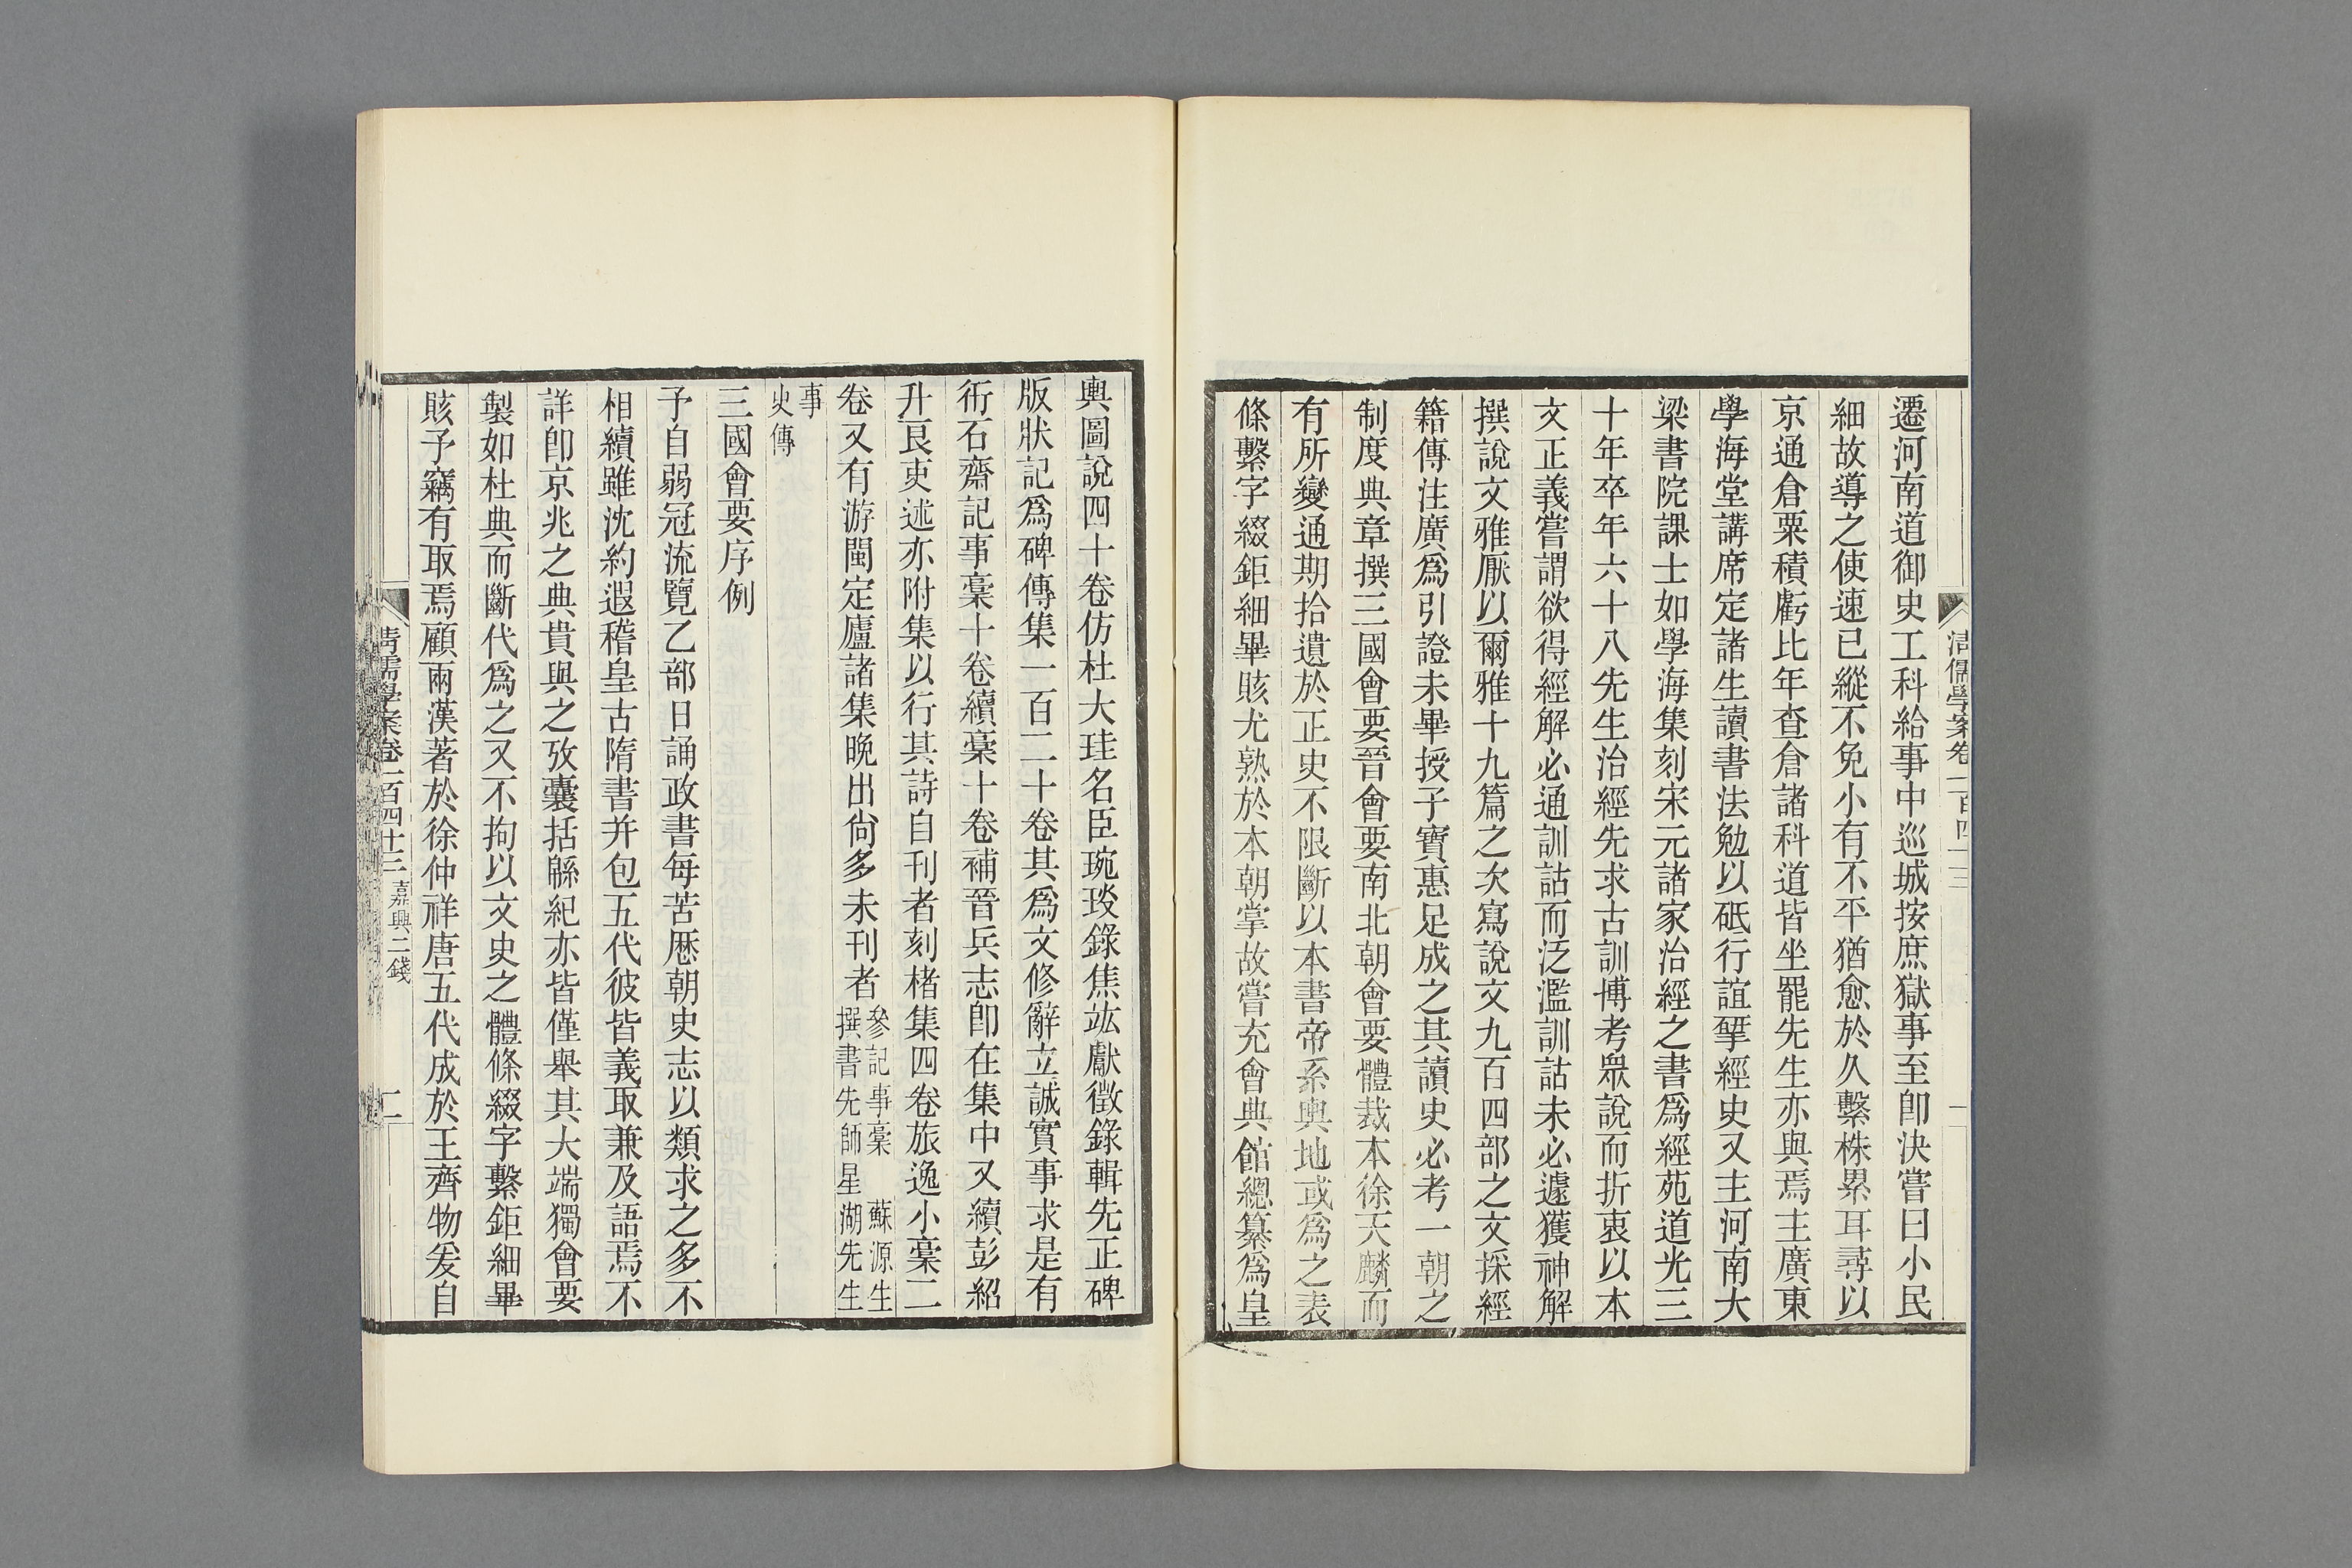 清儒學案卷一百四十三
遷河南道御史工科給事中巡城按庶獄事至卽決嘗曰小民
細故導之使速已縱不免小有不平猶愈於久繫株累耳尋以
京通倉粟積虧比年查倉諸科道皆坐罷先生亦與焉主廣東
學海堂講席定諸生讀書法勉以砥行誼揅經史又主河南大
梁書院課士如學海集刻宋元諸家治經之書爲經苑道光三
十年卒年六十八先生治經先求古訓博考眾說而折衷以本
文正義嘗謂欲得經解必通訓詁而泛濫訓詁未必遽獲神解
撰說文雅厭以爾雅十九篇之次寫說文九百四部之文採經
籍傳注廣爲引證未畢授子寶惠足成之其讀史必考一朝之
制度典章撰三國會要晉會要南北朝會要體裁本徐天麟而
有所變通期拾遺於正史不限斷以本書帝系輿地或爲之表
條繫字綴鉅細畢賅尤熟於本朝掌故嘗充會典館總纂爲皇
輿圖說四十卷仿杜大珪名臣琬琰錄焦竑獻徵錄輯先正碑
版狀記爲碑傳集一百二十卷其爲文修辭立誠實事求是有
衎石齋記事稾十卷續稾十卷補晉兵志卽在集中又續彭紹
升艮吏述亦附集以行其詩自刊者刻楮集四卷旅逸小稾二
卷又有游閩定廬諸集晚出尙多未刊者
參記事稾 蘇源生
撰書先師星湖先生
事
史傳
三國會要序例
予自弱冠流覽乙部日誦政書每苦歷朝史志以類求之多不
相續雖沈約遐稽皇古隋書并包五代彼皆義取兼及語焉不
詳卽京兆之典貴與之攷囊括緜紀亦皆僅舉其大端獨會要
製如杜典而斷代爲之又不拘以文史之體條綴字繫鉅細畢
賅予竊有取焉顧兩漢著於徐仲祥唐五代成於王齊物爰自
清儒學案卷一百四十三 嘉興二錢
二